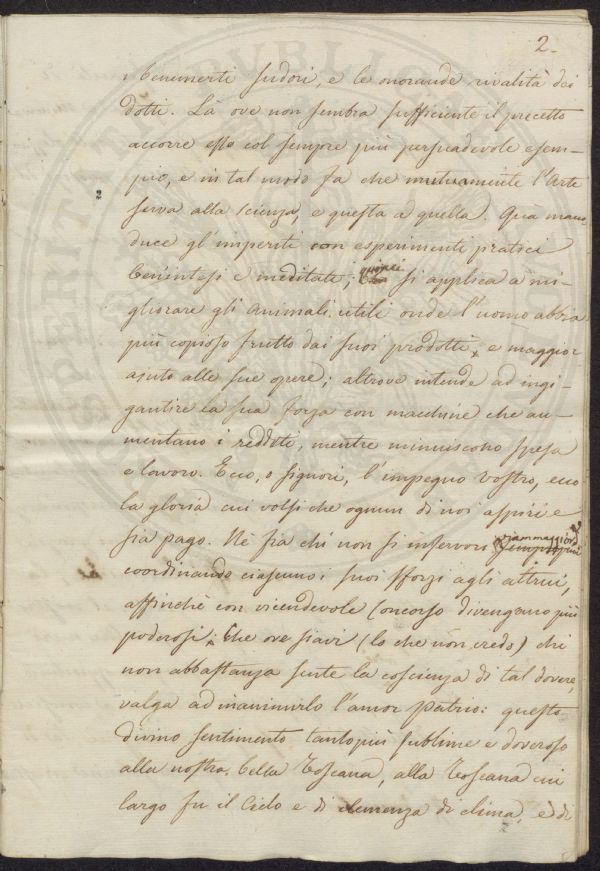 2.
i benemerti sudori, e le onorande rivalità dei
dotti. Là ove non sembra sufficiente il precetto
accorre esso col sempre più persuadevole esem-
pio, e in tal modo fa che mutuamente l'Arte
serva alla Scienza, e questa a quella. Quà man-
duce gl'imperiti con esperimenti pratici
benintesi e meditati; quindi si applica a mi-
gliorare gli animali utili onde l'uomo abbia
più copioso frutto dai suoi prodotti, e maggior
ajuto alle sue opere; altrove intende ad ingi-
gantire la sua forza con macchine che au-
mentano i redditi, mentre minuiscono spesa
e lavoro. Ecco, o signori, l'impegno vostro, ecco
la gloria cui volsi che ognun di noi aspiri e
sia pago. Nè sia chi non si infervori
coordinando ciascuno i suoi sforzi agli altrui,
affinchè con vicendevole concorso divengano più
poderosi; Che ove siavi (lo che non credo) chi
non abbastanza sente la coscienza di tal dovere,
valga ad inanimirlo l'amor Patrio: questo
divino sentimento tanto più sublime e doveroso
alla nostra bella Toscana, alla Toscana cui
largo fu il Cielo e di clemenza di clima, e di